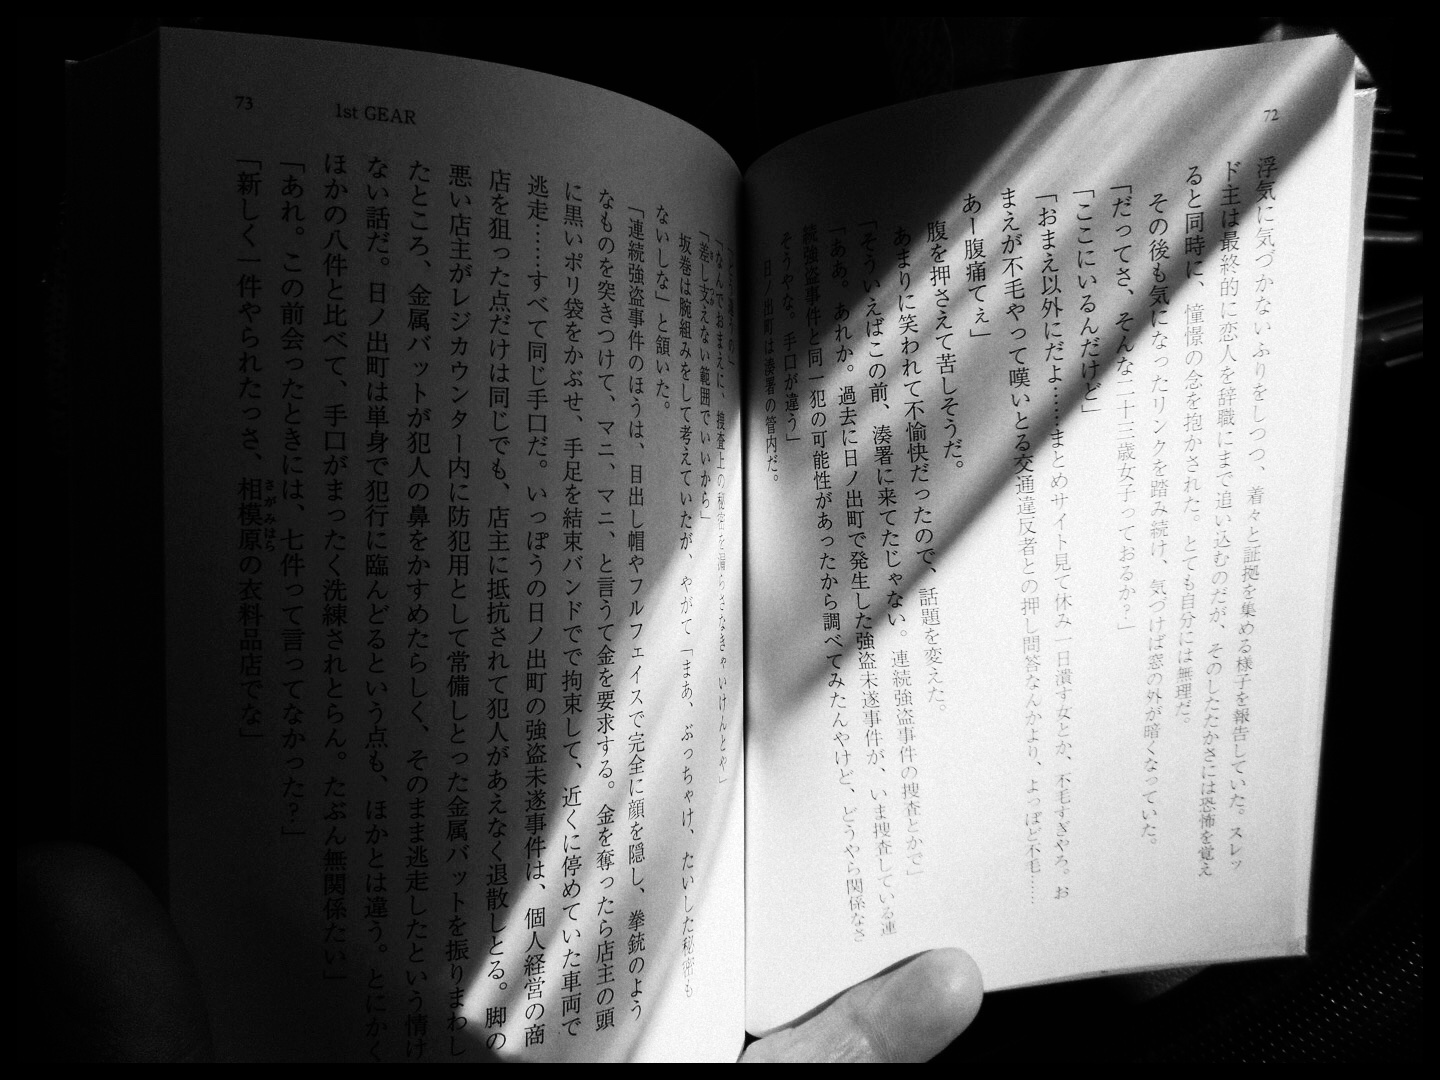 72
浮気に気づかないふりをしつつ、着々と証拠を集める様子を報告していた。スレッ
ド主は最終的に恋人を辞職にまで追い込むのだが、そのしたたかさには恐怖を覚え
ると同時に、憧憬の念を抱かされた。とても自分には無理だ。
その後も気になったリンクを踏み続け、気づけば窓の外が暗くなっていた。
「だってさ、そんな二十三歳女子っておるか？」
「ここにいるんだけど」
「おまえ以外にだよ……まとめサイト見て休み一日潰す女とか、不毛すぎやろ。お
まえが不毛やって嘆いとる交通違反者との押し問答なんかより、よっぽど不毛……
あー腹痛てぇ」
腹を押さえて苦しそうだ。
あまりに笑われて不愉快だったので、話題を変えた。
「そういえばこの前、湊署に来てたじゃない。連続強盗事件の捜査とかで」
「ああ。あれか。過去に日ノ出町で発生した強盗未遂事件が、いま捜査している連
続強盗事件と同一犯の可能性があったから調べてみたんやけど、どうやら関係なさ
そうやな。手口が違う」
日ノ出町は湊署の管内だ。
73
1st GEAR
「なんでおまえに、捜査上の秘密を漏らさなきゃいけんとや」
「差し支えない範囲でいいから」
坂巻は腕組みをして考えていたが、やがて「まあ、ぶっちゃけ、たいした秘密も
ないしな」と頷いた。
「連続強盗事件のほうは、目出し帽やフルフェイスで完全に顔を隠し、拳銃のよう
なものを突きつけて、マニ、マニ、と言うて金を要求する。金を奪ったら店主の頭
に黒いポリ袋をかぶせ、手足を結束バンドでで拘束して、近くに停めていた車両で
逃走……すべて同じ手口だ。いっぽうの日ノ出町の強盗未遂事件は、個人経営の商
店を狙った点だけは同じでも、店主に抵抗されて犯人があえなく退散しとる。脚の
悪い店主がレジカウンター内に防犯用として常備しとった金属バットを振りまわし
たところ、金属バットが犯人の鼻をかすめたらしく、そのまま逃走したという情け
ない話だ。日ノ出町は単身で犯行に臨んどるという点も、ほかとは違う。とにかく
ほかの八件と比べて、手口がまったく洗練されとらん。たぶん無関係たい」
「あれ。この前会ったときには、七件って言ってなかった？」
「新しく一件やられたったさ、相模原の衣料品店でな」